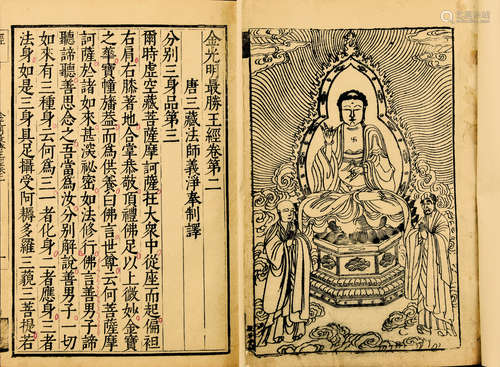 金光明最勝王經卷第二
唐三藏法師義淨奉制譯
分別三身品第三
爾時虛空藏菩薩摩訶薩在大衆中從座而起偏袒
右肩右膝著地合掌恭敬頂禮佛足以上微妙金寶
之華寶幢旛葢而爲供養白佛言世尊云何菩薩摩
訶薩於諸如來甚深祕密如法修行佛言善男子諦
聽諦聽善思念之吾當爲汝分別解說善男子一切
如來有三種身云何爲三一者化身二者應身三者
法身如是三身具足攝受阿耨多羅三藐三菩提若